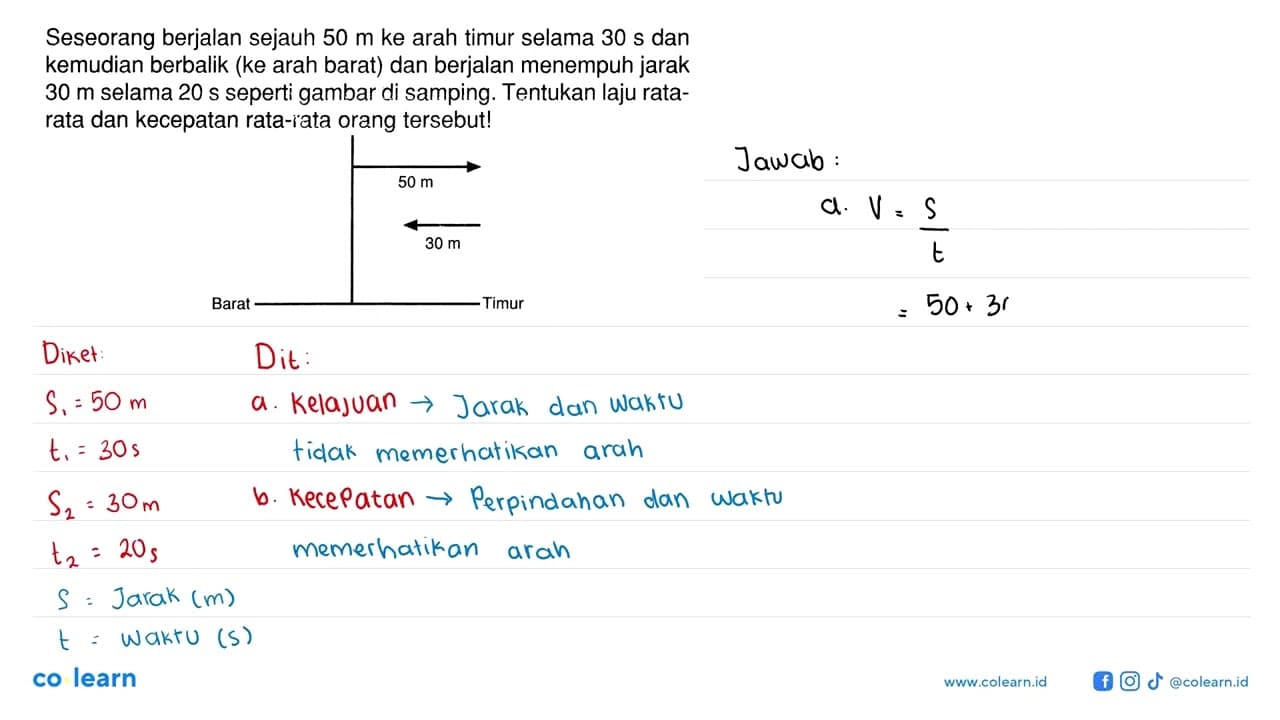 Seseorang berjalan sejauh 50 m ke arah timur selama 30 s dan
kemudian berbalik (ke arah barat) dan berjalan menempuh jarak
30 m selama 20 s seperti gambar di samping. Tentukan laju rata-
rata dan kecepatan rata-rata orang tersebut!
50 m
30 m
Barat
Timur
Jawab :
a. V = S
t
= 50 + 3
Diket:
S₁ = 50 m
t₁ = 30 s
S₂ = 30 m
t₂ = 20 s
S = Jarak (m)
t = waktu (s)
Dit :
a. Kelajuan → Jarak dan waktu
tidak memerhatikan arah
b. Kecepatan → Perpindahan dan waktu
memerhatikan arah
co learn
www.colearn.id
@colearn.id